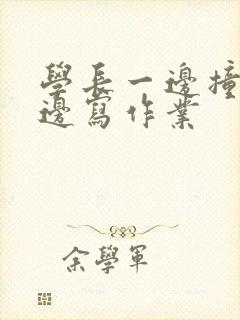 學長一邊撞
邊寫作業
余學軍